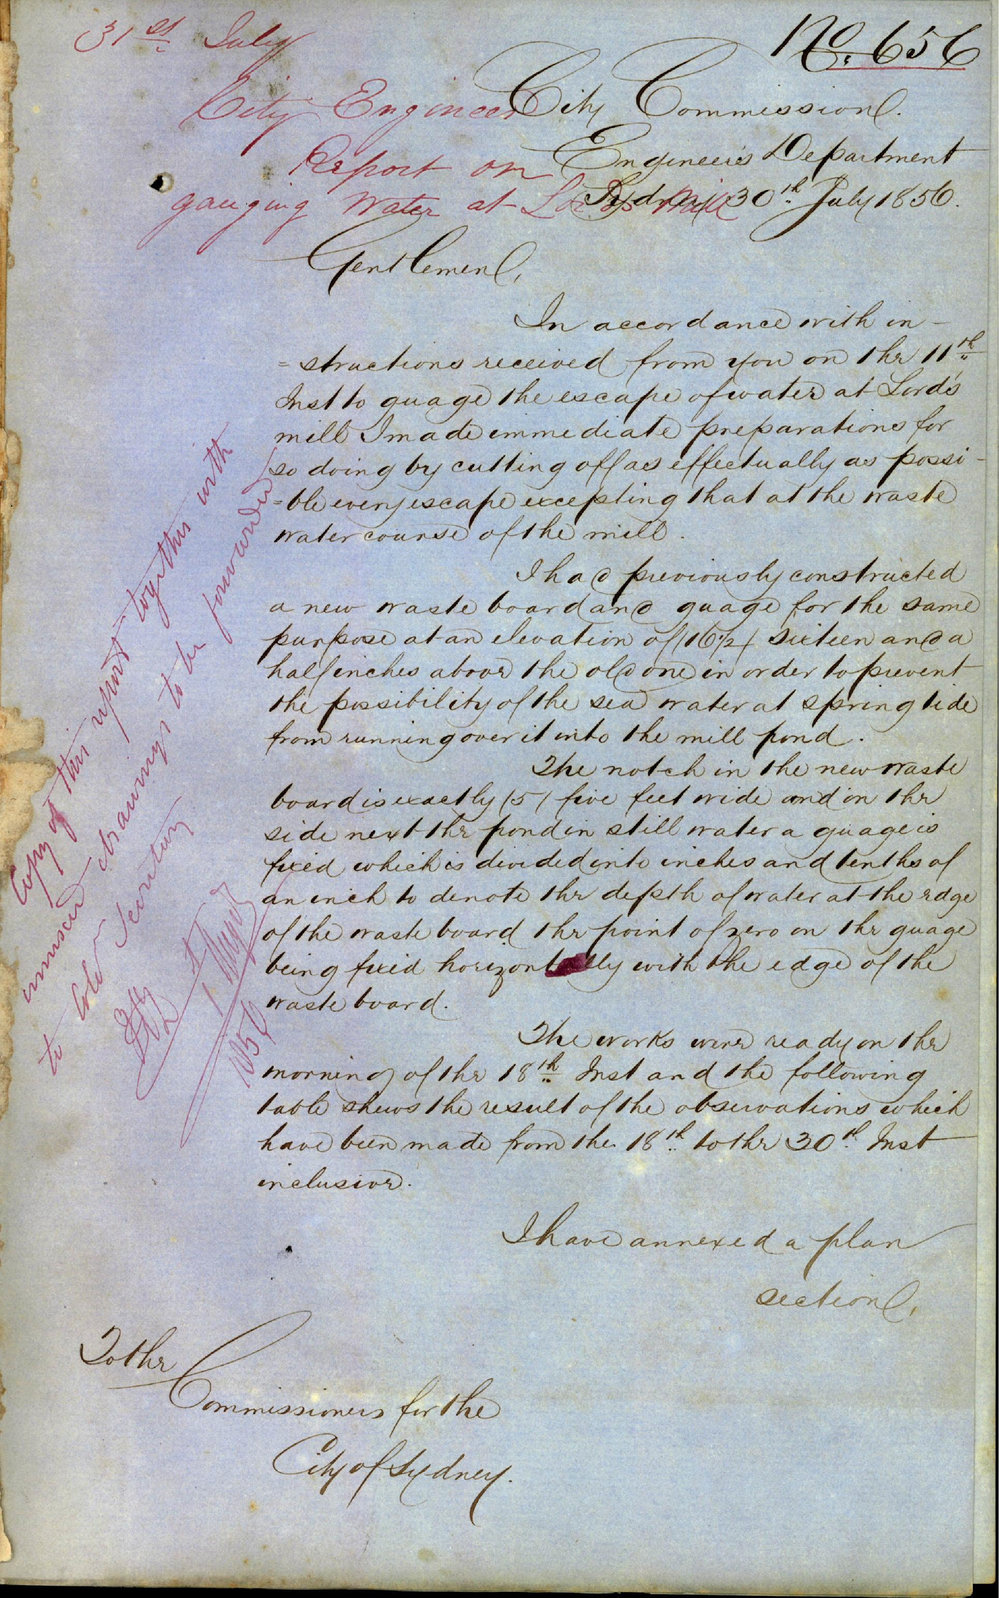 No. 656
31st July
City Engineer
Report on
gauging Water at Lords Mill
City Commission.
Engineer's Department
Sydney 30th July 1856.
Gentlemen,
In accordance with in-
=structions received from you on the 11th
Inst to guage the escape of water at Lord's
mill I made immediate preparations for
so doing by cutting off as effectually as possi-
=ble every escape excepting that at the waste
water course of the mill.
I had previously constructed
a new waste board and guage for the same
purpose at an elevation of (16½) sixteen and a
half inches above the old one in order to prevent
the possibility of the sea water at spring tide
from running over it into the mill pond.
The notch in the new waste
board is exactly (5) five feet wide and on the
side next the pond in still water a guage is
fixed which is divided into inches and tenths of
an inch to denote the depth of water at the edge
of the waste board the point of zero on the guage
being fixed horizontally with the edge of the
waste board.
The works were ready on the
morning of the 18th Inst and the following
table shews the result of the observations which
have been made from the 18th to the 30th Inst
inclusive.
I have annexed a plan
section,
To the
Commissioners for the
City of Sydney.
Copy of this report together with
drawings to be forwarded
to Colo Secretary
1 Augt
1856